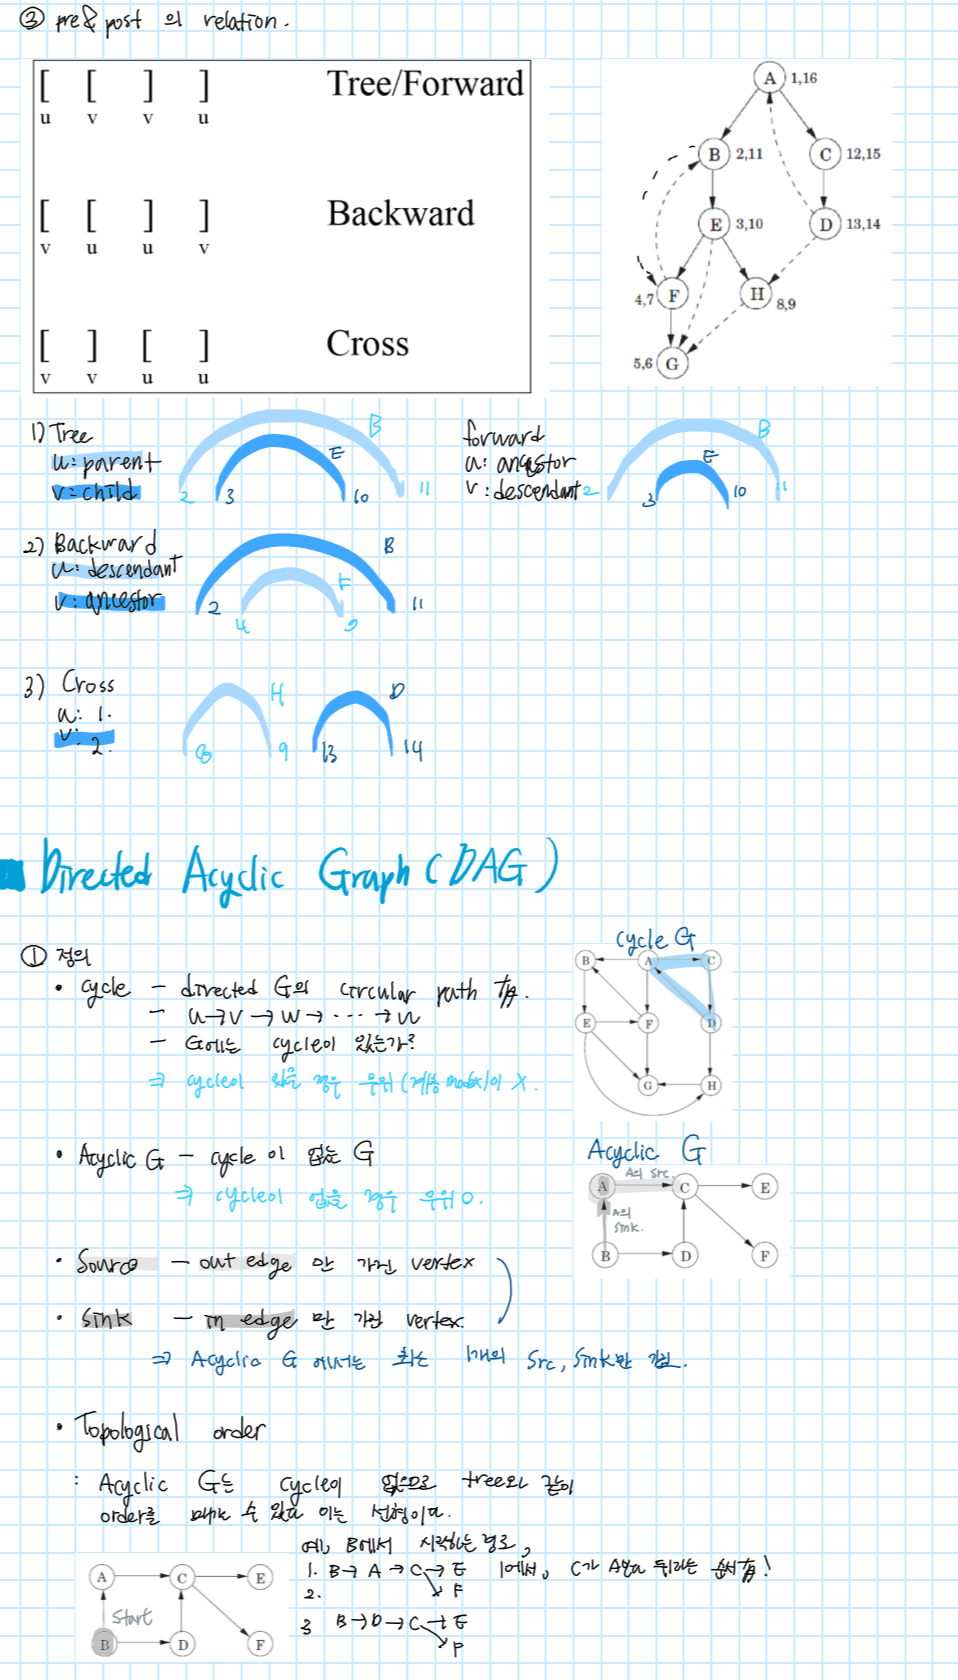 ③ pre&post 의 relation.
[ [ ] ] Tree/Forward
u v v u
[ [ ] ] Backward
v u u v
[ ] [ ] Cross
v v u u
A 1,16
B 2,11
C 12,15
E 3,10
D 13,14
4,7 F
H 8,9
5,6 G
1) Tree
u: parent
v: child
B
E
2 3 10 11
forward
u: ancestor
v: descendant
B
E
2 3 10 11
2) Backward
u: descendant
v: ancestor
B
F
2 4 9 11
3) Cross
u: 1.
v: 2.
H D
8 9 13 14
Directed Acyclic Graph (DAG)
① 정의
• cycle - directed G의 circular path 有.
- u→v→w→···→u
- G에는 cycle이 있는가?
⇒ cycle이 있을 경우 우위 (계층 node)이 X.
cycle G
B A C
E F D
G H
• Acyclic G - cycle이 없는 G
⇒ cycle이 없을 경우 우위 O.
Acyclic G
A의 src.
A C E
A의
sink.
B D F
• Source - out edge 만 가진 vertex
• Sink - in edge 만 가진 vertex.
⇒ Acyclic G 에서는 최소 1개의 Src, Sink만 가짐.
• Topological order
: Acyclic G는 cycle이 없으므로 tree와 같이
order를 매길 수 있고 이는 선형이다.
예) B에서 시작하는 경로,
1. B→A→C→E 1에서, C가 A보다 뒤라는 순서有!
2. ↘F
3 B→D→C→E
↘F
A C E
Start
B D F